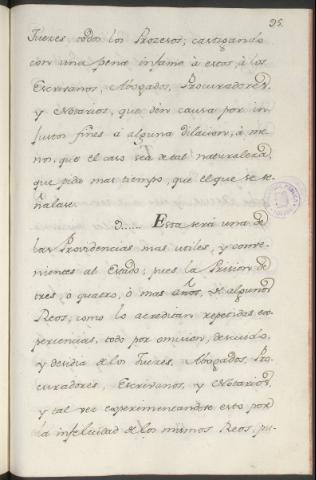 95.
Jueces todos los Procesos; castigando
con una pena infame à estos, à los
Escrivanos, Abogados, Procuradores,
y Notarios, que dèn causa por in-
justos fines à alguna dilacion, à me-
nos, que el caso sea de tal naturaleza,
que pida mas tiempo, que el que se se-
ñalase.
9...... Esta serà una de
las Providencias mas utiles, y conve-
nientes al Estado; pues la Prision de
tres, o quatro, ò mas años, de algunos
Reos, como lo acreditan repetidas ex-
periencias, todo por omision, descuido,
y desidia de los Jueces, Abogados, Pro-
curadores, Escrivanos, y Notarios,
y tal vez experimentandose esto por
la infelicidad de los mismos Reos, pu-